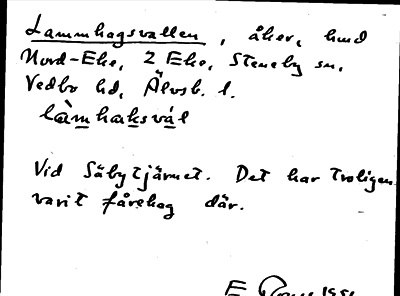 Lammhagsvallen, åker, hmd
Nord-Eke, 2 Eke, Steneby sn,
Vedbo hd, Älvsb. l.
làmhaksvál
Vid Säbytjärnet. Det har troligen
varit fårehag där.
E